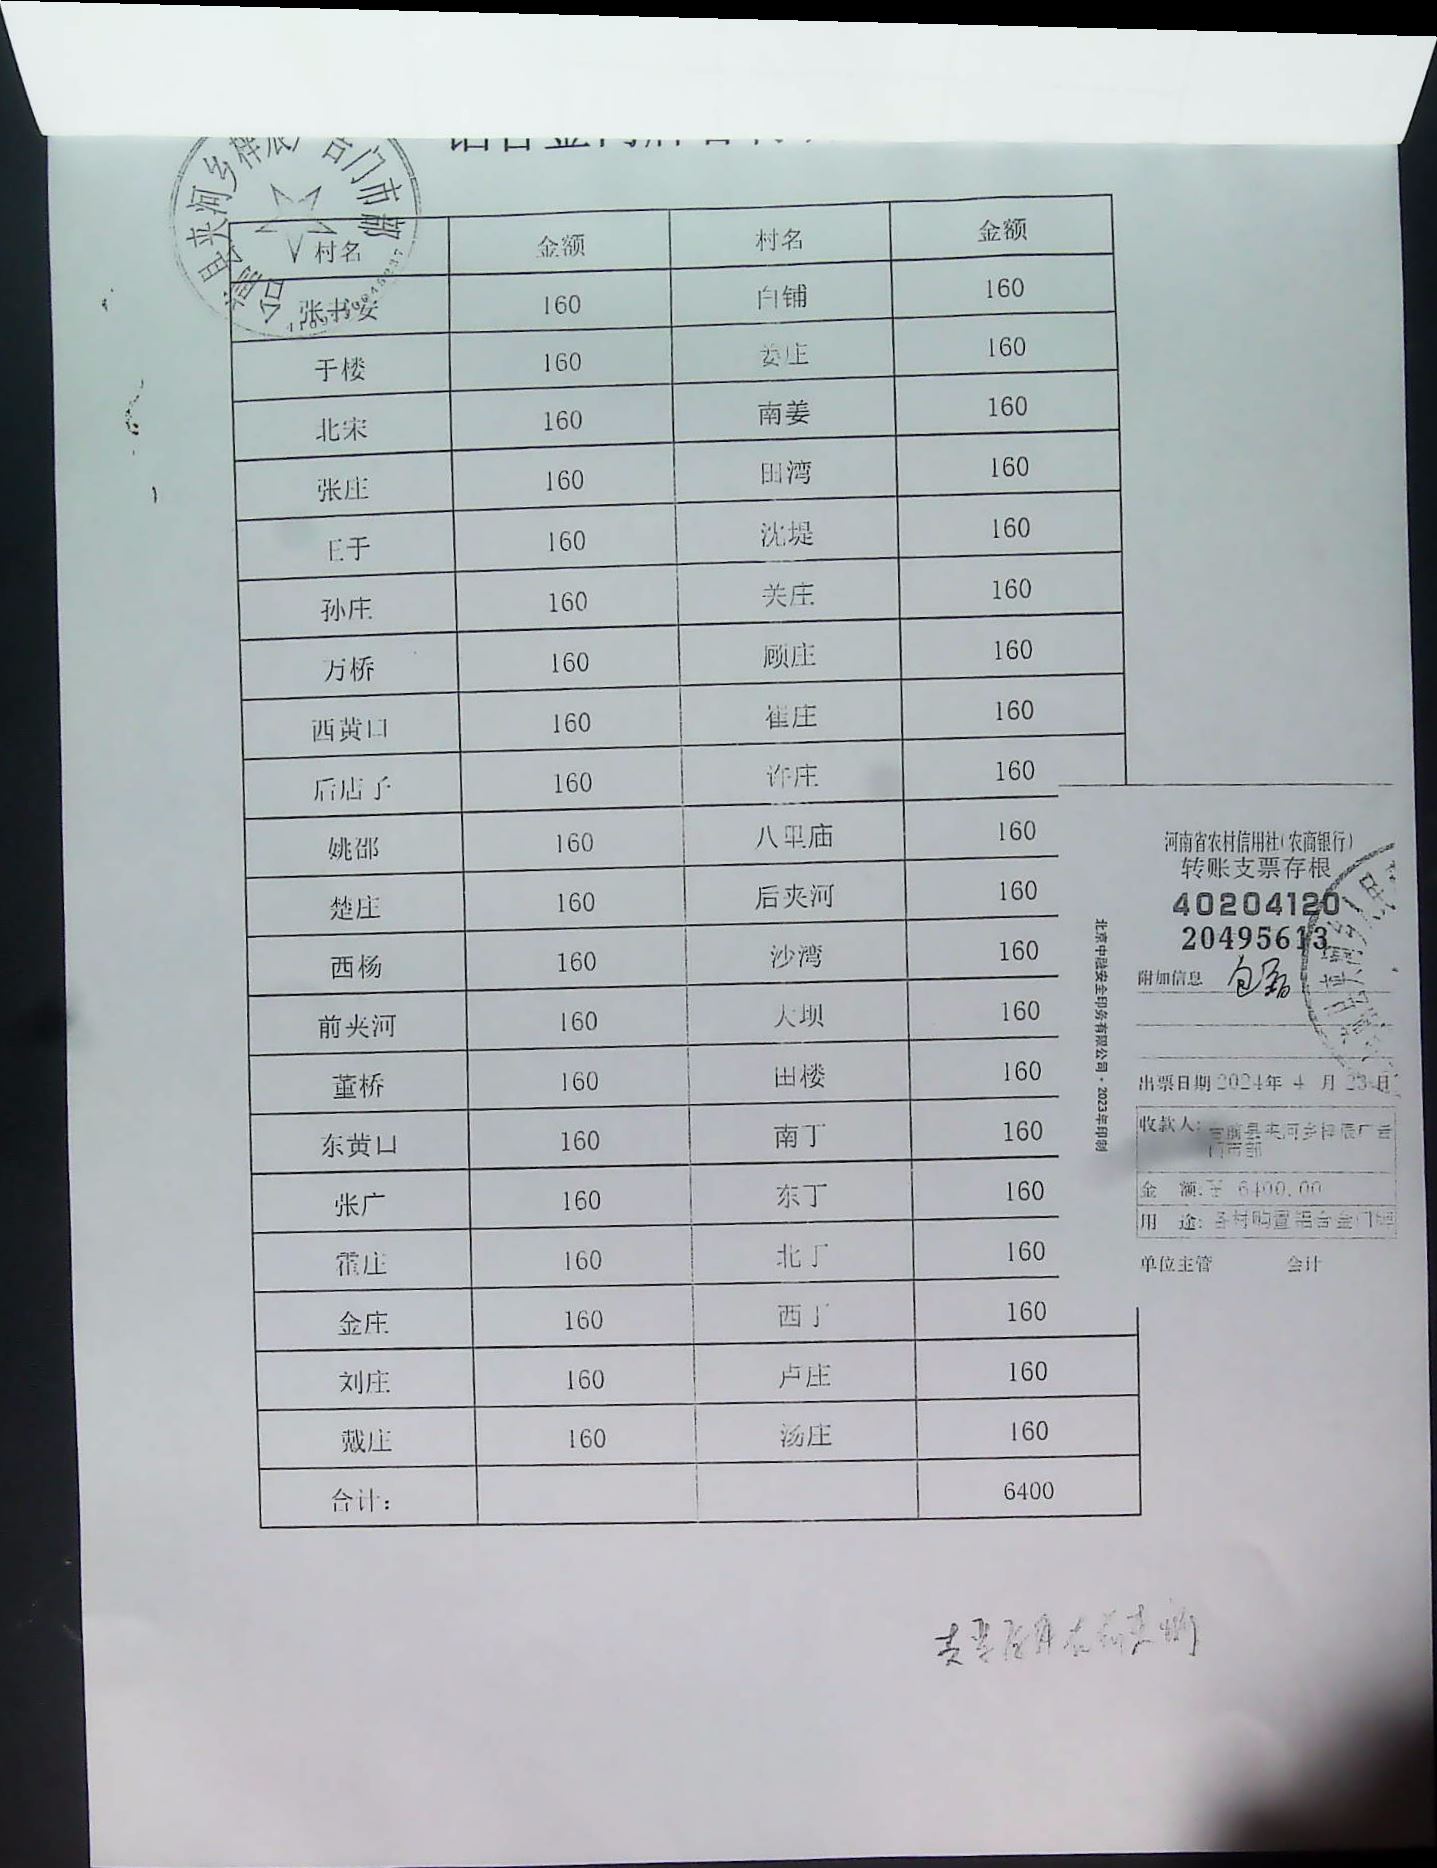 村名 金额 村名 金额
张书安 160 白铺 160
于楼 160 娄庄 160
北宋 160 南姜 160
张庄 160 田湾 160
王于 160 沈堤 160
孙庄 160 关庄 160
万桥 160 顾庄 160
西黄口 160 崔庄 160
后店子 160 许庄 160
姚邵 160 八里庙 160
楚庄 160 后夹河 160
西杨 160 沙湾 160
前夹河 160 大坝 160
董桥 160 田楼 160
东黄口 160 南丁 160
张广 160 东丁 160
霍庄 160 北丁 160
金庄 160 西丁 160
刘庄 160 卢庄 160
戴庄 160 汤庄 160
合计： 6400
河南省农村信用社(农商银行)
转账支票存根
40204120
20495613
附加信息
出票日期 2024年 4 月 23日
收款人: 台前县夹河乡梓辰广告
门市部
金 额:¥ 6400.00
用 途: 各村购置铝合金门牌
单位主管 会计
北京中融安全印务有限公司·2023年印制